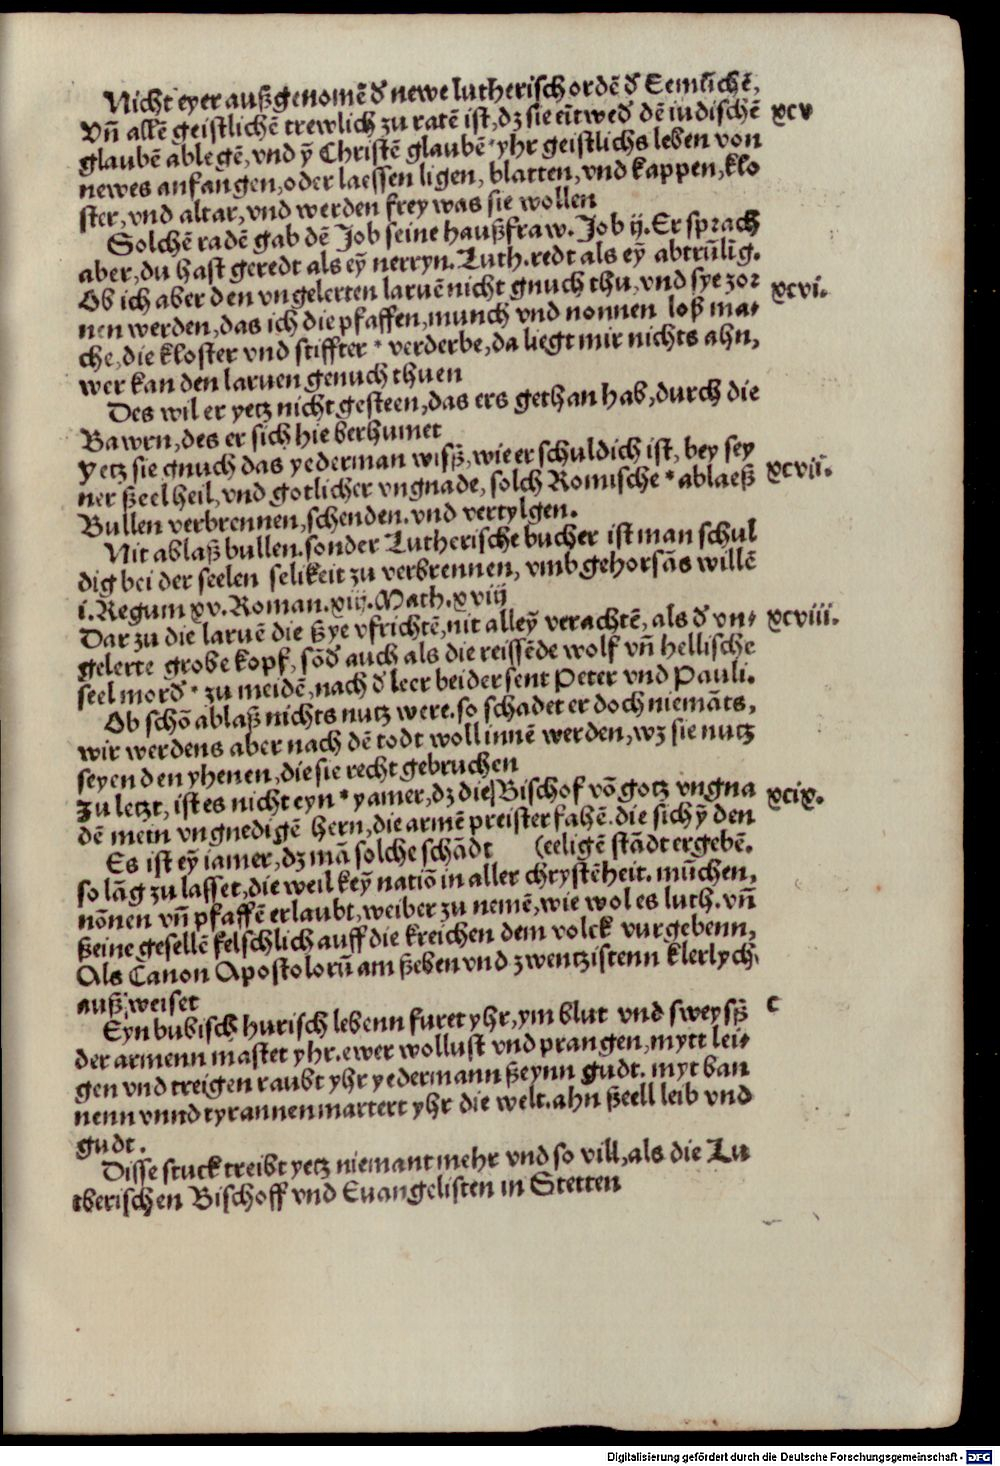 Nicht eyer außgenomē d̄ newe lutherisch ordē d̄ Eemūchē,
Vn̄ allē geistlichē trewlich zu ratē ist, dz sie eīt wed̄ dē iudischē xcv
glaubē ablegē, vnd ȳ Christē glaubē * yhr geistlichs leben von
newes anfangen, oder laessen ligen, blatten, vnd kappen, klo
ster, vnd altar, vnd werden frey was sie wollen
Solchē radē gab dē Job seine haußfraw. Job ij. Er sprach
aber, du hast geredt als eȳ nerryn. Luth. redt als eȳ abtrūlīg.
Ob ich aber den vngelerten laruē nicht gnuch thu, vnd sye zor xcvi.
nen werden, das ich die pfaffen, munch vnd nonnen loß ma-
che, die kloster vnd stiffter * verderbe, da liegt mir nichts ahn,
wer kan den laruen genuch thuen
Des wil er yetz nicht gesteen, das ers gethan hab, durch die
Bawrn, des er sich hie berhumet
Yetz sie gnuch das yederman wisß, wie er schuldich ist, bey sey
ner ßeel heil, vnd gotlicher vngnade, solch Romische * ablaeß xcvii.
Bullen verbrennen, schenden. vnd vertylgen.
Nit ablaß bullen. sonder Lutherische bucher ist man schul
dig bei der seelen selikeit zu verbrennen, vmb gehorsās willē
i. Regum xv. Roman. xiij. Math. xviij
Dar zu die laruē die ßye vfrichtē, nit alleȳ verachtē, als d̄ vn- xcviii.
gelerte grobe kopf, sōd̄ auch als die reissēde wolf vn̄ hellische
seel mord̄ * zu meidē, nach d̄ leer beider sent Peter vnd Pauli.
Ob schō ablaß nichts nutz were. so schadet er doch niemāts,
wir werdens aber nach dē todt woll innē werden, wz sie nutz
seyen den yhenen, die sie recht gebruchen
Zu letzt, ist es nicht eyn * yamer, dz die Bischof vō gotz vngna xcix.
dē mein vngnedigē hern, die armē preister fahē. die sich ȳ den
Es ist eȳ iamer, dz mā solche schādt (eeligē stādt ergebē.
so lāg zu lasset, die weil keȳ natiō in aller chrystēheit. mūchen,
nōnen vn̄ pfaffē erlaubt, weiber zu nemē, wie wol es luth. vn̄
ßeine gesellē felschlich auff die kreichen dem volck vurgebenn,
Als Canon Apostolorū am ßeben vnd zwentzistenn klerlych
auß weiset
Eyn bubisch hurisch lebenn furet yhr, ym blut vnd sweysß c
der armenn mastet yhr. ewer wollust vnd prangen, mytt lei-
gen vnd treigen raubt yhr yedermann ßeynn gudt. myt ban
nenn vnnd tyrannen martert yhr die welt. ahn ßeell leib vnd
gudt.
Disse stuck treibt yetz niemant mehr vnd so vill, als die Lu
therischen Bischoff vnd Euangelisten in Stetten
Digitalisierung gefördert durch die Deutsche Forschungsgemeinschaft - DFG